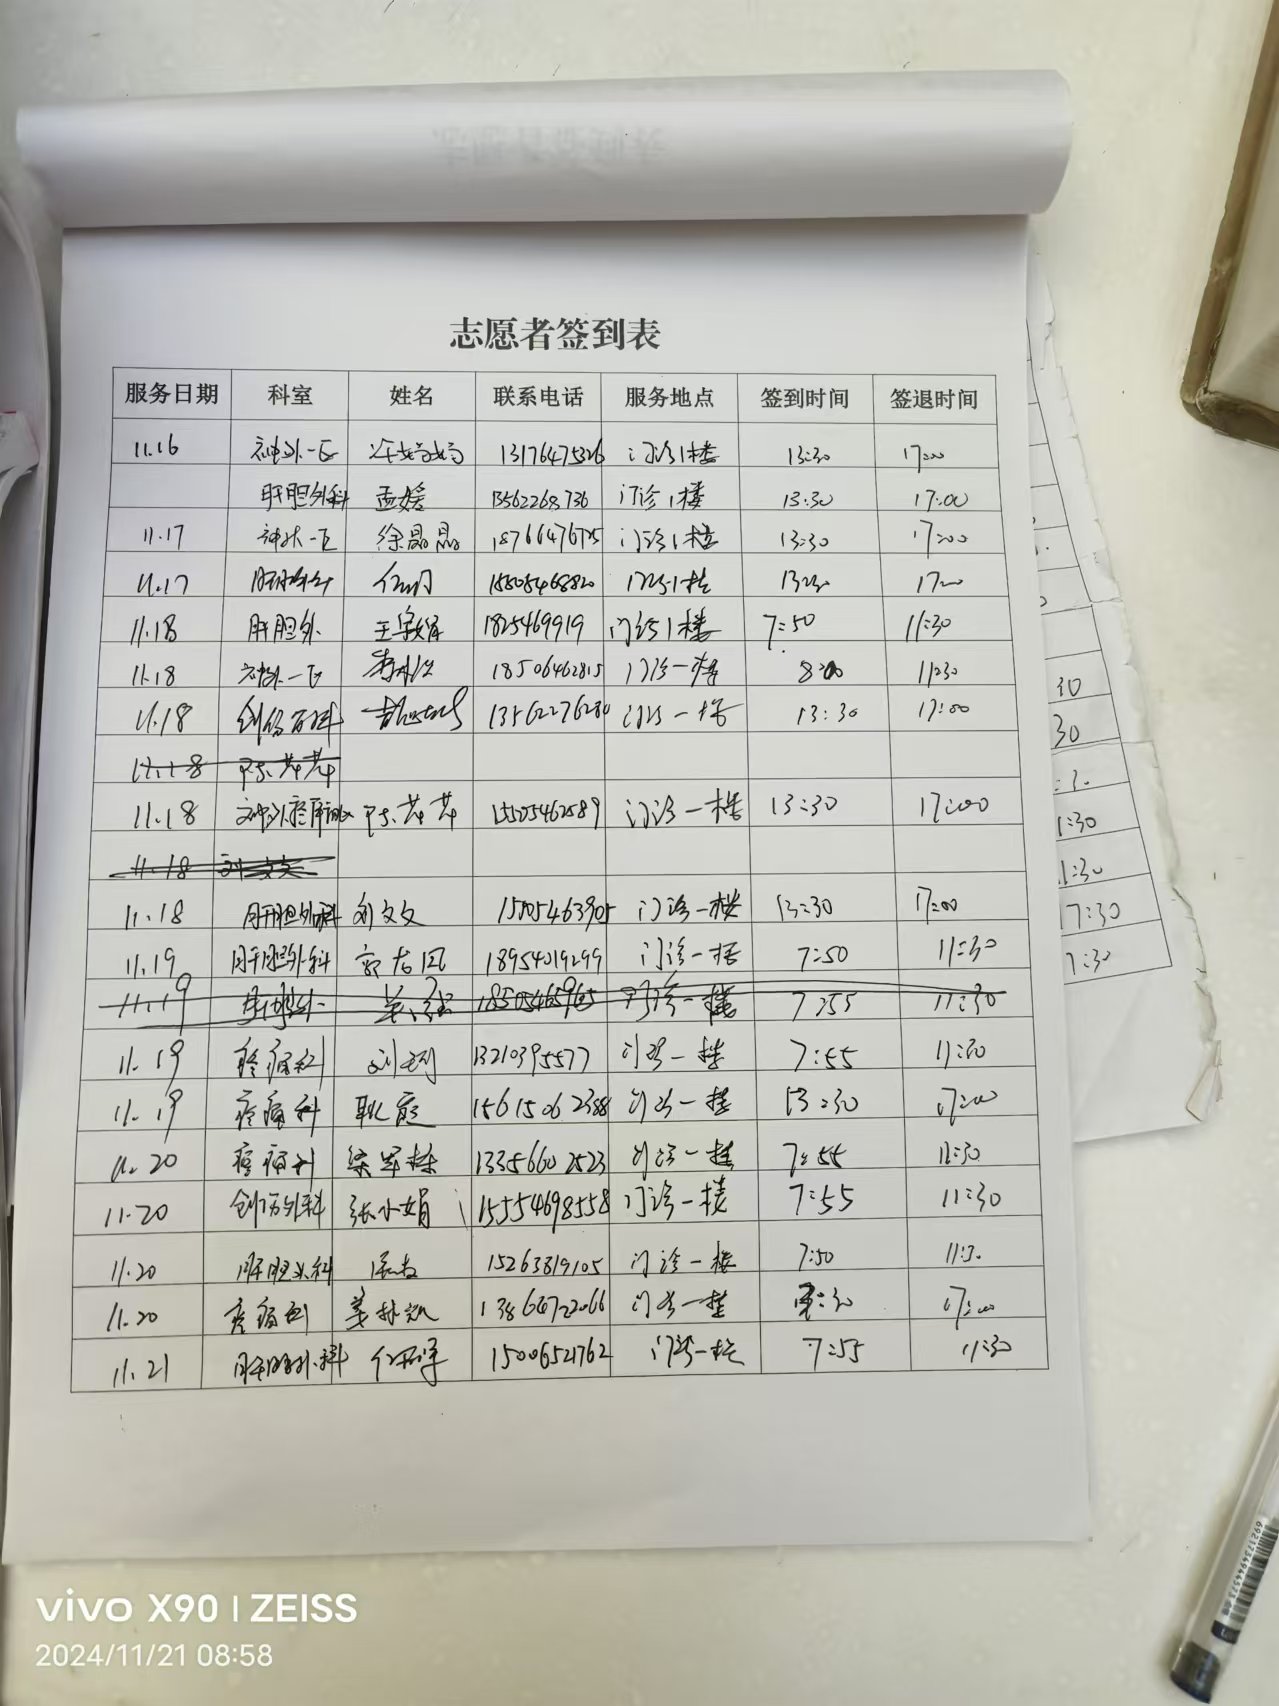 志愿者签到表
服务日期 科室 姓名 联系电话 服务地点 签到时间 签退时间
11.16 神外一区 13176475326 门诊1楼 13:30 17:00
肝胆外科 孟媛 13562268736 门诊1楼 13:30 17:00
11.17 神外一区 徐晶晶 18766476725 门诊1楼 13:30 17:00
11.17 15805468820 门诊1楼 1330 1700
11.18 肝胆外 1825469919 门诊1楼 7:50 11:30
11.18 神外一区 18506462815 门诊一楼 8:00 11:30
11.18 创伤 13562276280 门诊一楼 13:30 17:00
11.18 陈芹芹
11.18 陈芹芹 15505462589 门诊一楼 13:30 17:00
11.18 刘文文
11.18 肝胆外科 刘文文 15505463905 门诊一楼 13:30 17:00
11.19 肝胆外科 18954019299 门诊一楼 7:50 11:30
11.19 肝胆外 18505465965 门诊一楼 7:55 11:30
11.19 疼痛科 13210395577 门诊一楼 7:55 11:30
11.19 疼痛科 15615062388 门诊一楼 13:30 17:00
11.20 疼痛科 13356602523 门诊一楼 7:55 11:30
11.20 创伤外科 张小娟 15554698558 门诊一楼 7:55 11:30
11.20 肝胆外科 15263819105 门诊一楼 7:50 11:3.
11.20 疼痛科 13866722066 门诊一楼 17:00
11.21 肝胆外科 15006521762 门诊一楼 7:55 11:30
30
30
:3.
1:30
1:30
17:30
7:30
vivo X90 | ZEISS
2024/11/21 08:58